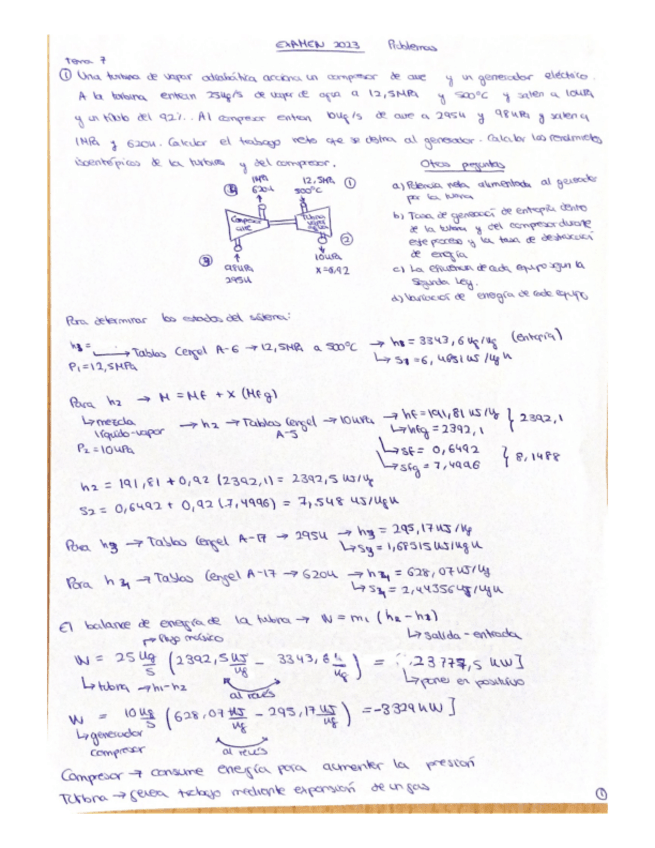 EXAMEN 2023 Problemas
Tema 7
① Una turbina de vapor adiabática acciona un compresor de aire y un generador eléctrico.
A la turbina entran 25kg/s de vapor de agua a 12,5MPa y 500°C y salen a 10kPa
y un título del 92%. Al compresor entran 10kg/s de aire a 295K y 98kPa y salen a
1MPa y 620K. Calcular el trabajo neto que se destina al generador. Calcular los rendimientos
isoentrópicos de la turbina y del compresor.
Otras preguntas
a) Potencia neta alimentada al generador
por la turbina
b) Tasa de generació de entropía dentro
de la turbina y del compresor durante
este proceso y la tasa de destrucción
de exergía
c) La eficiencia de cada equipo según la
Segunda Ley.
d) Variación de exergía de cada equipo
1MPa
620K
12,5MPa
500°C
①
Compresor
aire
Turbina
vapor
agua
②
③
98kPa
295K
10kPa
x=0,92
Para determinar los estados del sistema:
→ Tablas Cengel A-6 → 12,5MPa a 500°C → h₁ = 3343,6 kJ/kg (entalpía)
P₁=12,5MPa
↳ S₁ = 6,4651 kJ/kg K
Para h₂ → M = Mf + x (Mfg)
↳ mezcla
líquido-vapor
P₂=10kPa
→ h₂ → Tablas Cengel → 10kPa → hf = 191,81 kJ/kg } 2392,1
A-5
↳ hfg = 2392,1
↳ sf = 0,6492 } 8,1488
↳ sfg = 7,4996
h₂ = 191,81 + 0,92 (2392,1) = 2392,5 kJ/kg
S₂ = 0,6492 + 0,92 (7,4996) = 7,548 kJ/kg K
Para h₃ → Tablas Cengel A-17 → 295K → h₃ = 295,17 kJ/kg
↳ S₃ = 1,68515 kJ/kg K
Para h₄ → Tablas Cengel A-17 → 620K → h₄ = 628,07 kJ/kg
↳ S₄ = 2,44356 kJ/kg K
El balance de energía de la tubina → W = m₁ (h₂ - h₁)
→ Flujo másico
↳ salida - entrada
W = 25 kg/s (2392,5 kJ/kg - 3343,6 kJ/kg) = 23777,5 kW]
↳ turbina → h₁-h₂
al revés
↳ poner en positivo
W = 10 kg/s (628,07 kJ/kg - 295,17 kJ/kg) = -3329 kW]
↳ generador
compresor
al revés
Compresor → consume energía para aumentar la presión
Turbina → genera trabajo mediante expansión de un gas
①